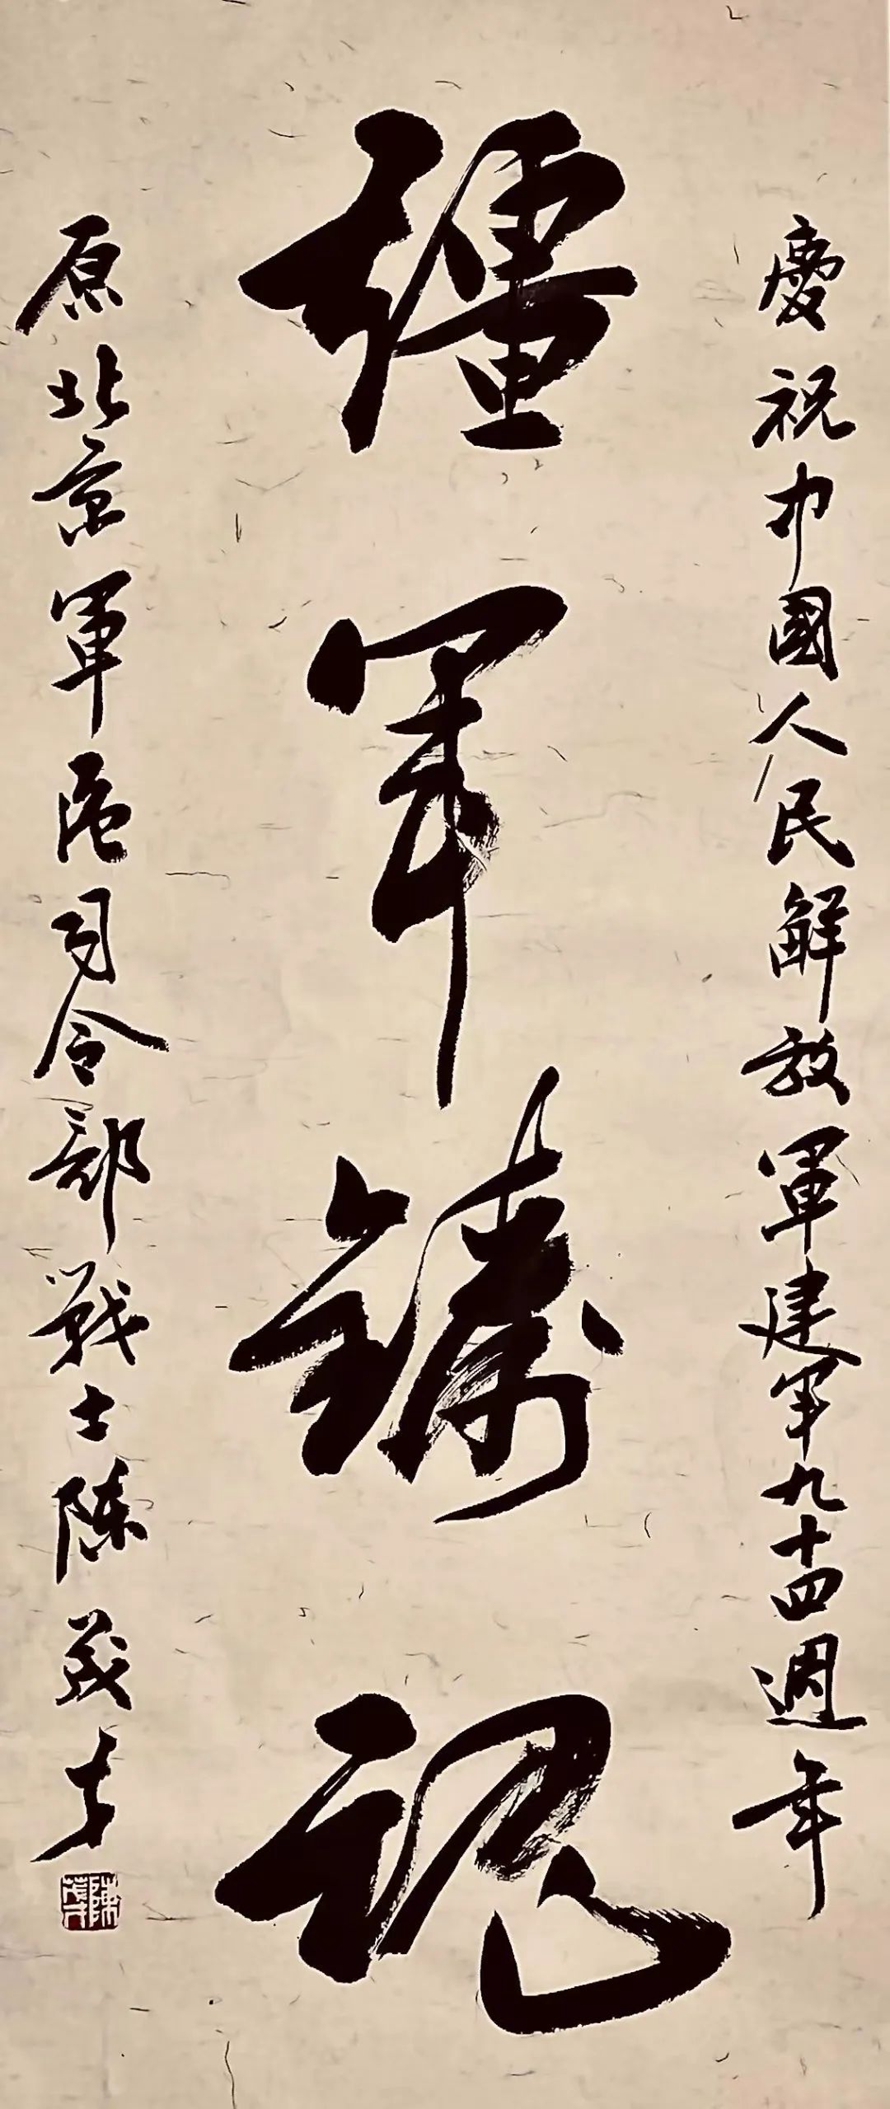 慶祝中國人民解放軍建軍九十四週年
彊軍鑄魂
原北京軍區司令部戰士陳茂才